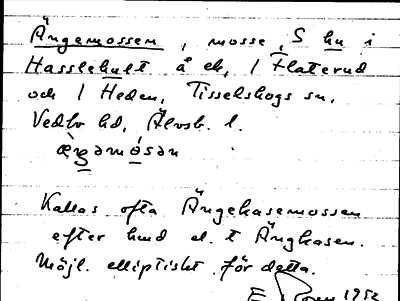 Ängemossen, mosse, S hu i
Hasslehult å ek, 1 Flaterud
och 1 Heden, Tisselskogs sn,
Vedbo hd, Älvsb. l.
æŋəmósən
Kallas ofta Ängehasemossen
efter hmd el. t Änghasen.
Möjl. elliptiskt för detta.
E 1952